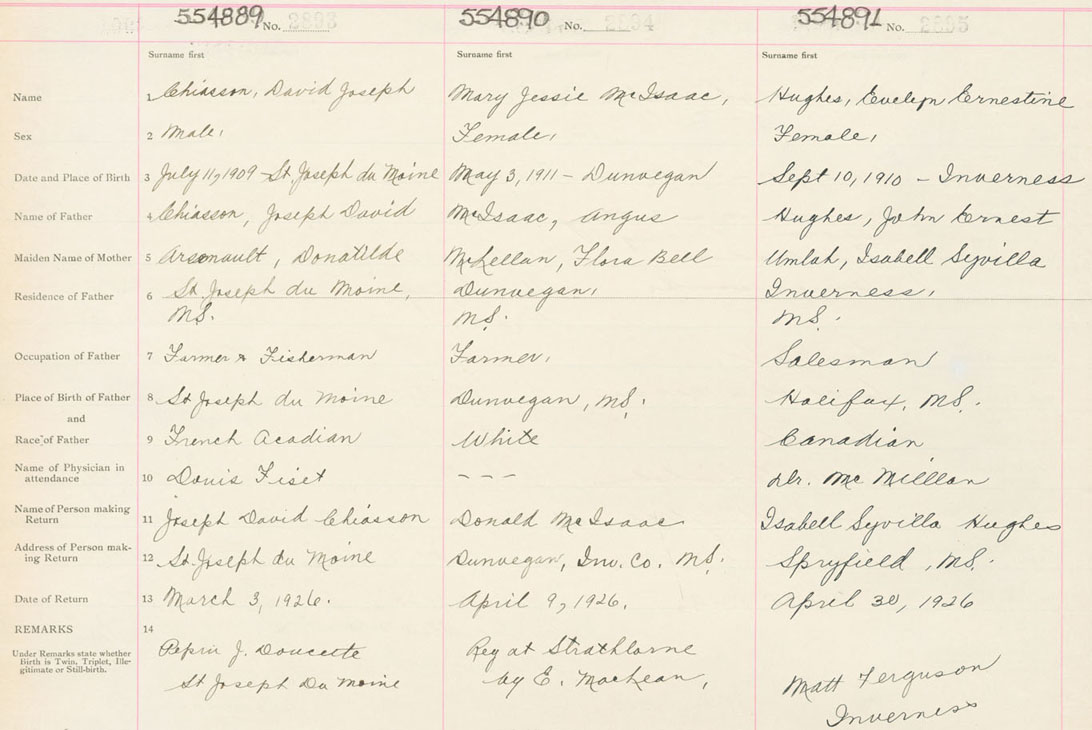 554889 No. 2893 554890 No. 2894 554891 No. 2895
Surname first Surname first Surname first
Name 1 Chiasson, David Joseph Mary Jessie McIsaac, Hughes, Evelyn Ernestine
Sex 2 Male, Female, Female,
Date and Place of Birth 3 July 11, 1909 - St. Joseph du Moine May 3, 1911 - Dunvegan Sept 10, 1910 - Inverness
Name of Father 4 Chiasson, Joseph David McIsaac, Angus Hughes, John Ernest
Maiden Name of Mother 5 Arsenault, Donatilde McLellan, Flora Bell Umlah, Isabell Syvilla
Residence of Father 6 St. Joseph du Moine, Dunvegan, Inverness,
N.S. N.S. N.S.
Occupation of Father 7 Farmer & Fisherman Farmer, Salesman
Place of Birth of Father 8 St Joseph du Moine Dunvegan, N.S. Halifax, N.S.
and
Race of Father 9 French Acadian White Canadian
Name of Physician in
attendance 10 Fiset - - - Dr. Mc Milllan
Name of Person making
Return 11 Joseph David Chiasson Donald McIsaac Isabell Syvilla Hughes
Address of Person mak-
ing Return 12 St. Joseph du Moine Dunvegan, Inv. Co. N.S. Spryfield, N.S.
Date of Return 13 March 3, 1926. April 9, 1926. April 30, 1926
REMARKS 14
Under Remarks state whether
Birth is Twin, Triplet, Ille-
gitimate or Still-birth.
J. Doucette Reg at Strathlorne Matt Ferguson
St Joseph Du Moine by E. MacLean, Inverness